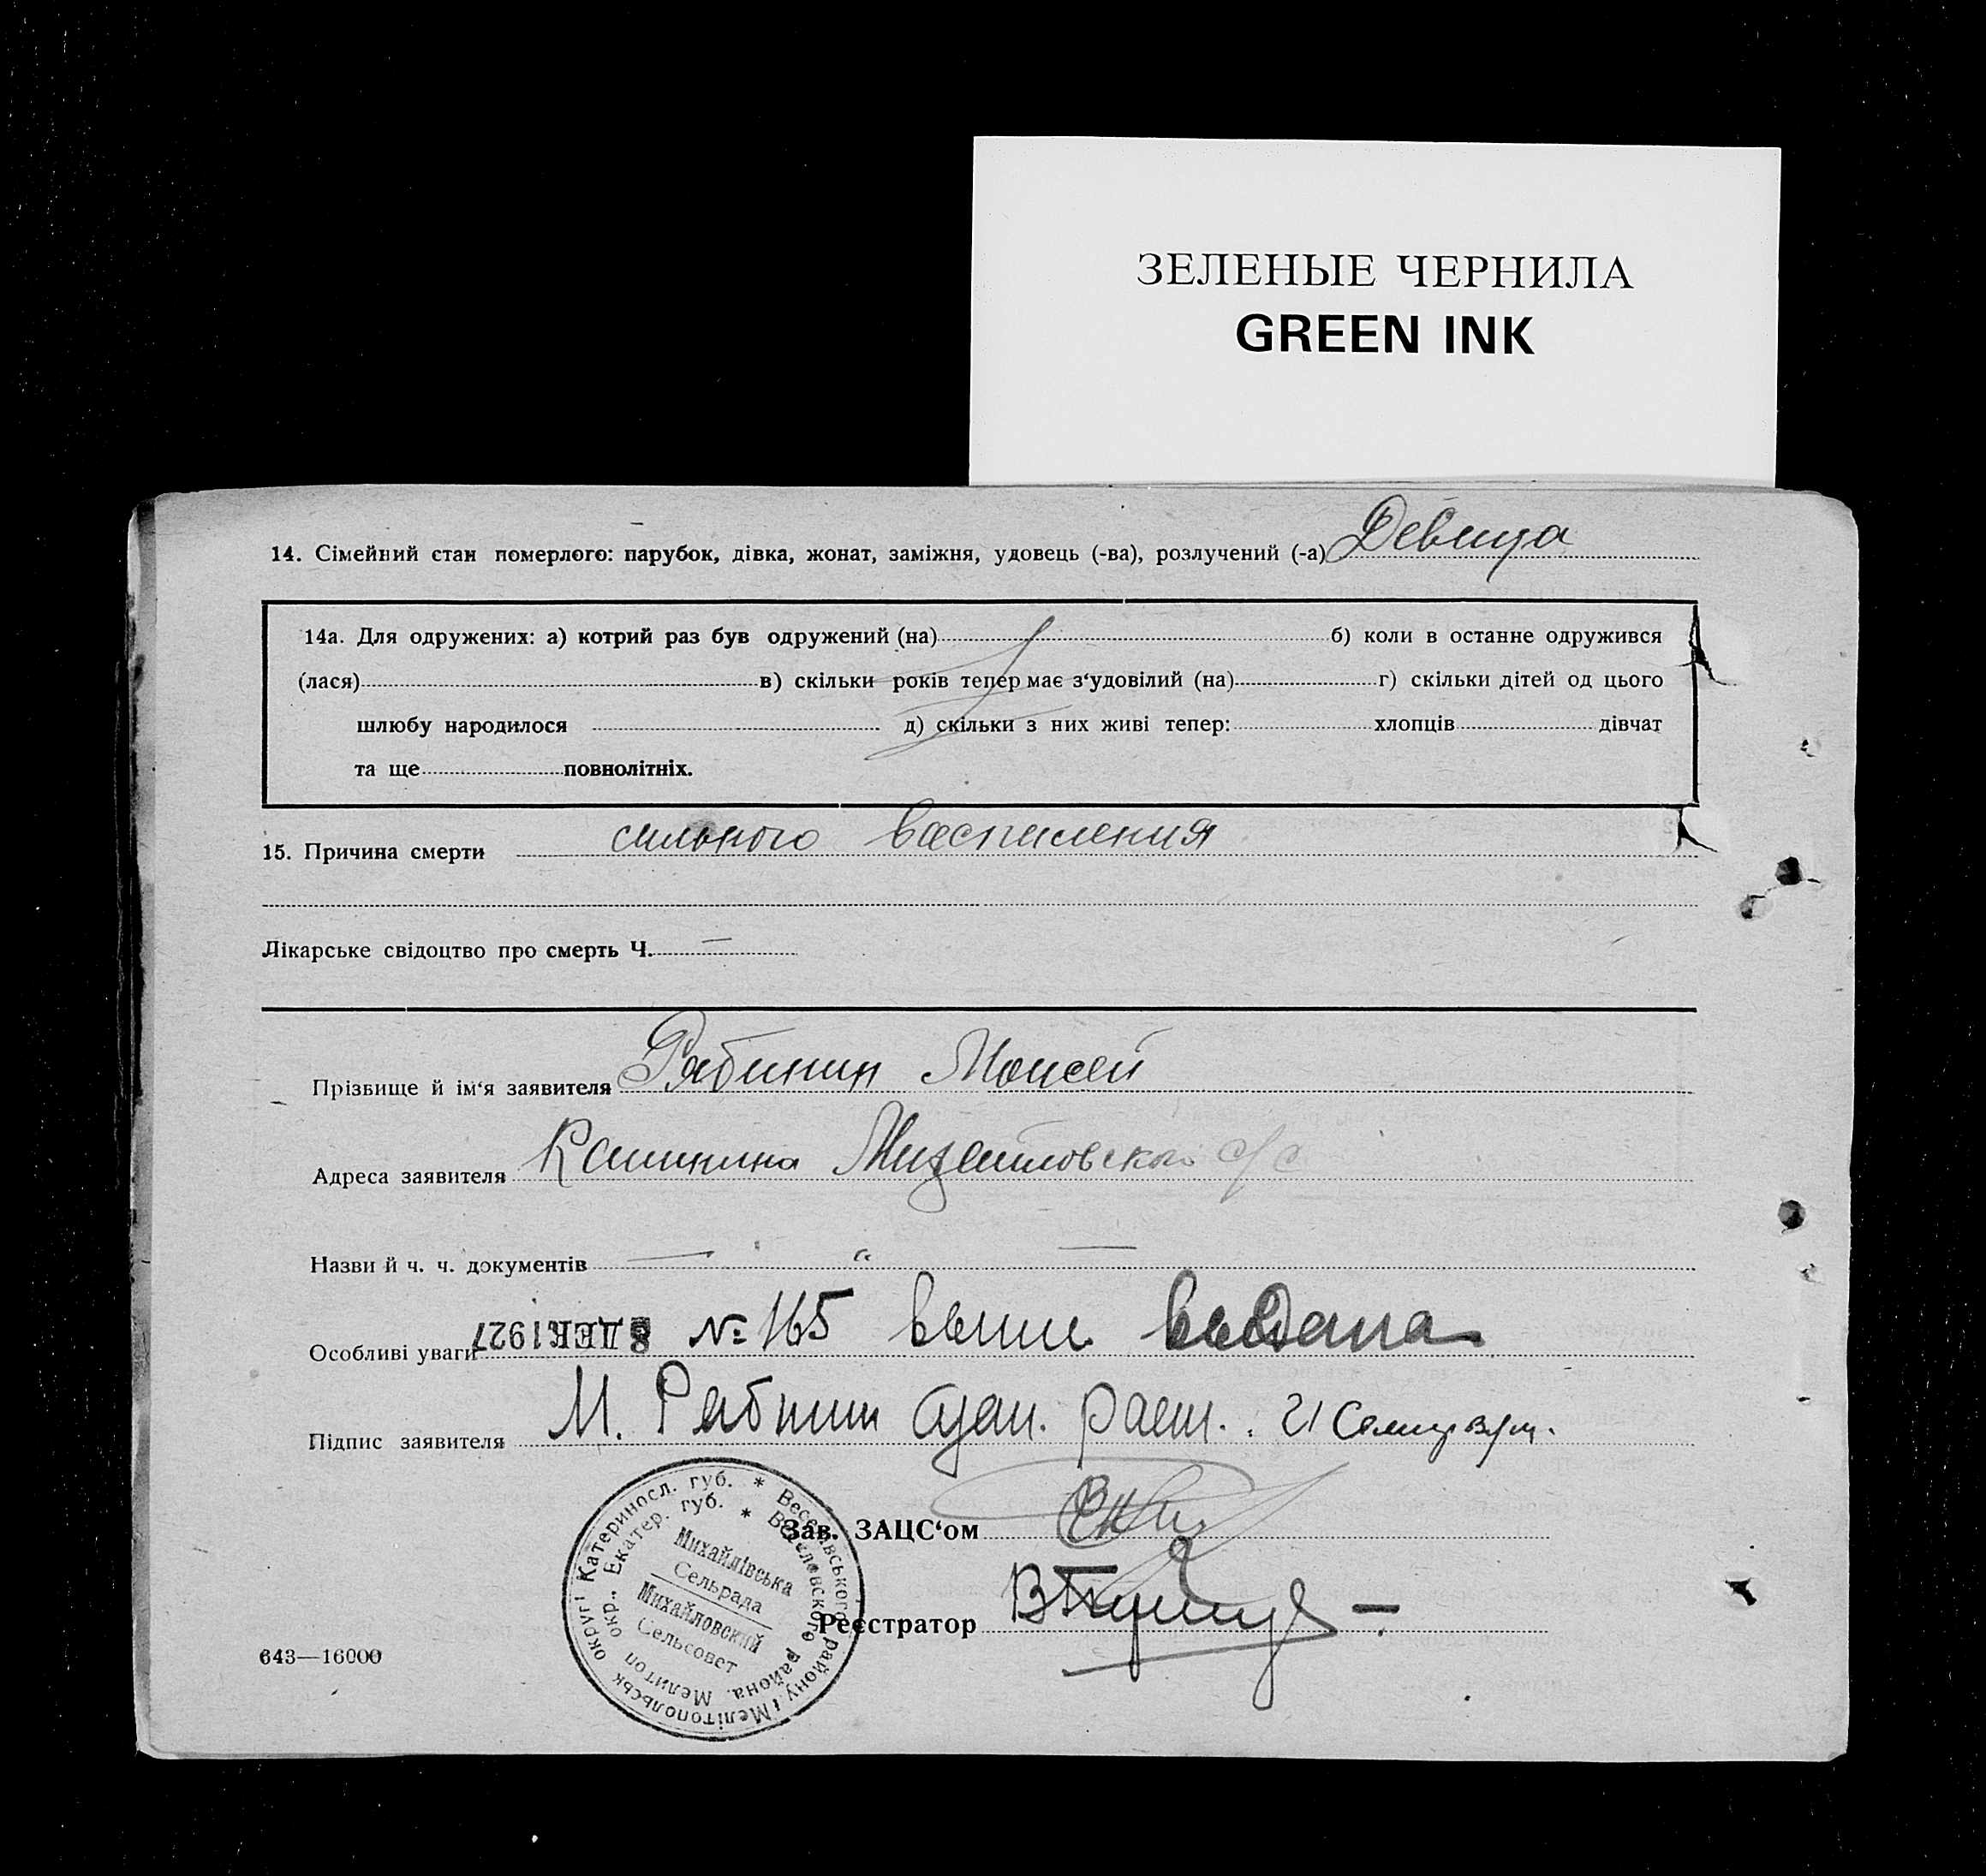 ЗЕЛЕНЫЕ ЧЕРНИЛА
GREEN INK
14. Сімейний стан померлого: парубок, дівка, жонат, заміжня, удовець (-ва), розлучений (-а) Девица
14а. Для одружених: а) котрий раз був одружений (на) б) коли в останне одружився
(лася) в) скільки років тепер має з‘удовілий (на) г) скільки дітей од цього
шлюбу народилося д) скільки з них живі тепер: хлопців дівчат
та ще повнолітніх.
15. Причина смерти сильного васпиления
Лікарське свідоцтво про смерть Ч. —
Прізвище й ім‘я заявителя Рябинин Моисей
Адреса заявителя Михайловского с/с
Назви й ч. ч. документів — „ —
Особливі уваги 8 ДЕК 1927 № 165 выпис выдана
Підпис заявителя М. Рябинин
Зав. ЗАЦС‘ом
Реєстратор
Катериносл. губ. * Веселівського району, Мелітопольськ округі
Екатер. губ. * Веселовского района, Мелитоп окр.,
Михайлівська
Сельрада
Михайловский
Сельсовет
643—16000